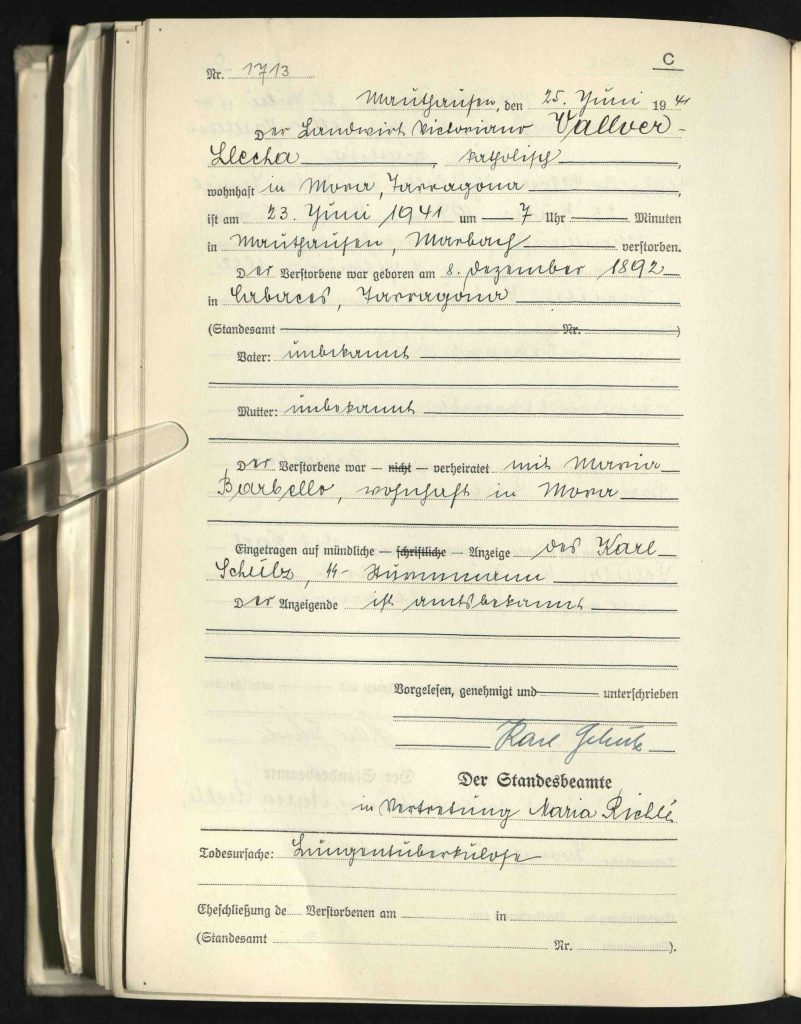 C
Nr. 1713
Mauthausen, den 25. Juni 1941
Der Landwirt Victoriano Vallver-
Llecha, katholisch,
wohnhaft in Mora, Tarragona,
ist am 23. Juni 1941 um 7 Uhr Minuten
in Mauthausen, Marbach verstorben.
Der Verstorbene war geboren am 8. Dezember 1892
in Cabaces, Tarragona
(Standesamt Nr. )
Vater: unbekannt
Mutter: unbekannt
Der Verstorbene war — nicht — verheiratet mit Maria
Barbello, wohnhaft in Mora
Eingetragen auf mündliche — schriftliche — Anzeige des Karl
Schulz, SS-Sturmmann
Der Anzeigende ist amtsbekannt
Vorgelesen, genehmigt und unterschrieben
Karl Schulz
Der Standesbeamte
in Vertretung Maria
Todesursache: Lungentuberkulose
Eheschließung de Verstorbenen am in
(Standesamt Nr. ).